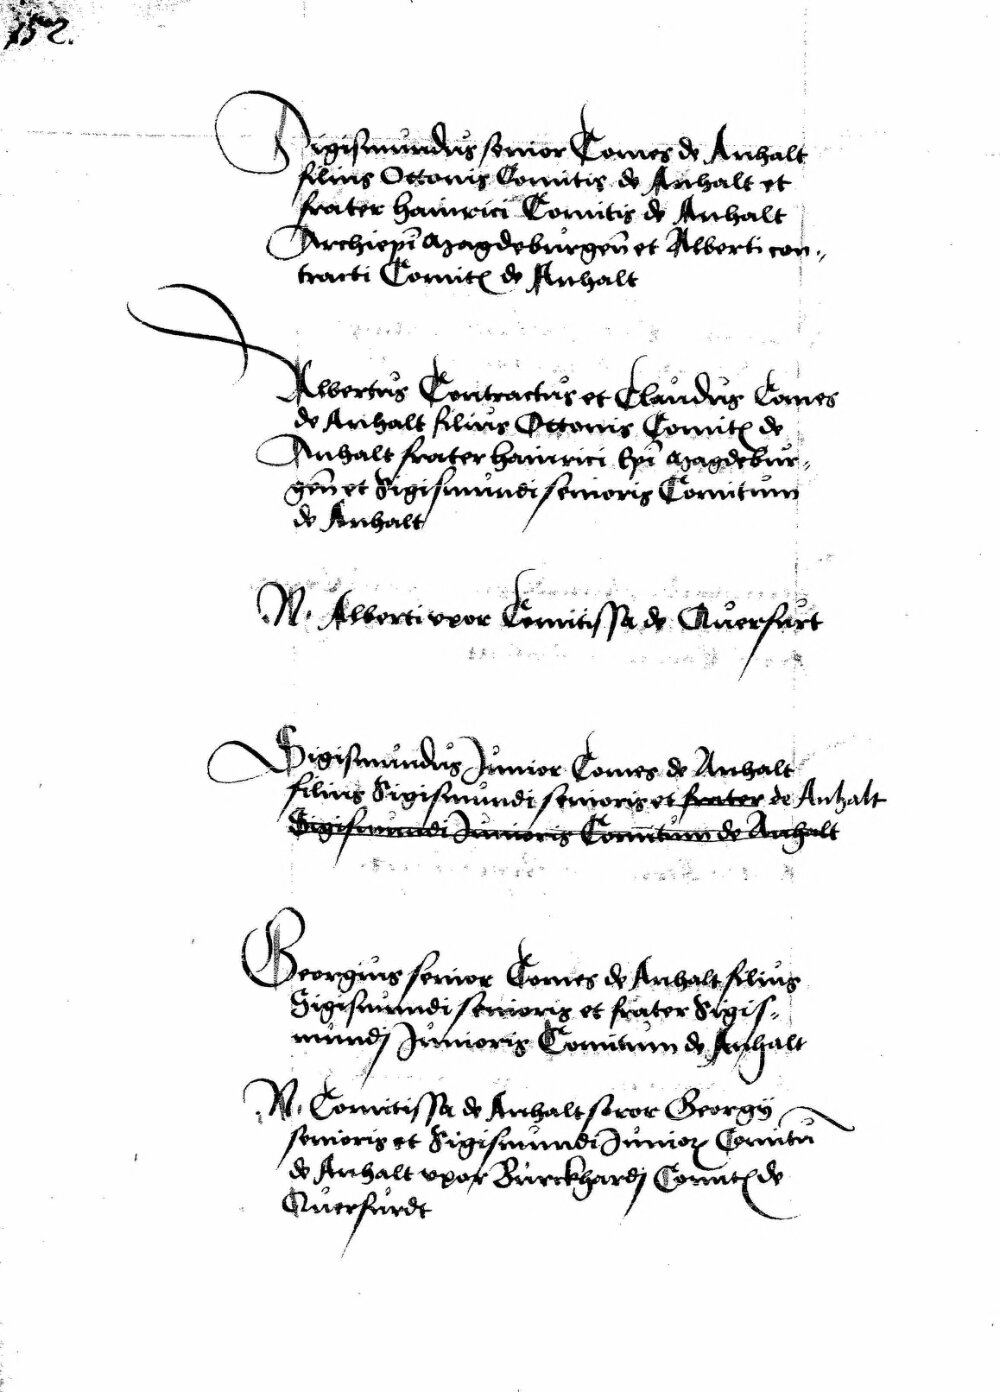 152.
Sigismundus senior Comes de Anhalt
filius Ottonis Comitis de Anhalt et
frater hainrici Comitis de Anhalt
Archiepi Magdeburgen et Alberti con-
tracti Comit de Anhalt
Albertus Contractus et Claudus Comes
de Anhalt filius Ottonis Comit de
Anhalt frater hainrici Epi Magdebur-
gen et Sigismundi senioris Comitum
de Anhalt
N. Alberti uxor Comitissa de Querfurt
Sigismundus Junior Comes de Anhalt
filius Sigismundi senioris et frater de Anhalt
Sigismundi Junioris Comitum de Anhalt
Georgius senior Comes de Anhalt filius
Sigismundi senioris et frater Sigis-
mundj Junioris Comitum de Anhalt
N. Comitissa de Anhalt soror Georgij
senioris et Sigismundi Junior Comitu
de Anhalt uxor Burckhardj Comit de
Querfurdt